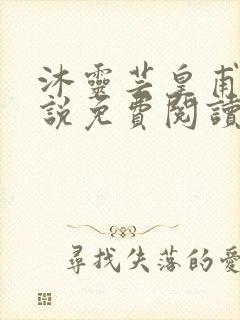 沐靈芸皇甫
說免費閱讀
尋找失落的愛